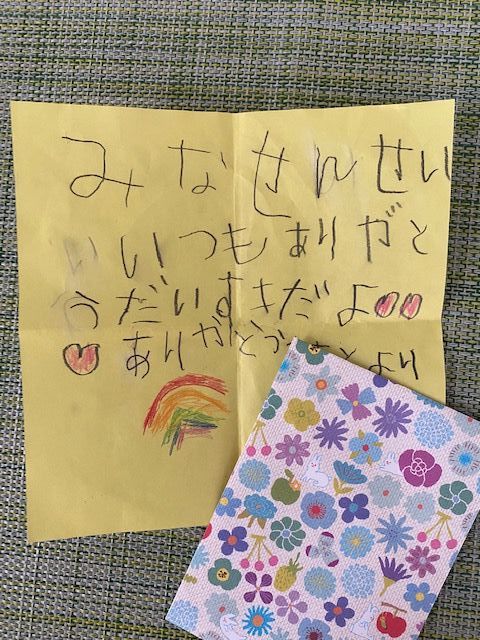 みなせんせい
いつもありがと
うだいすきだよ
ありがとう より